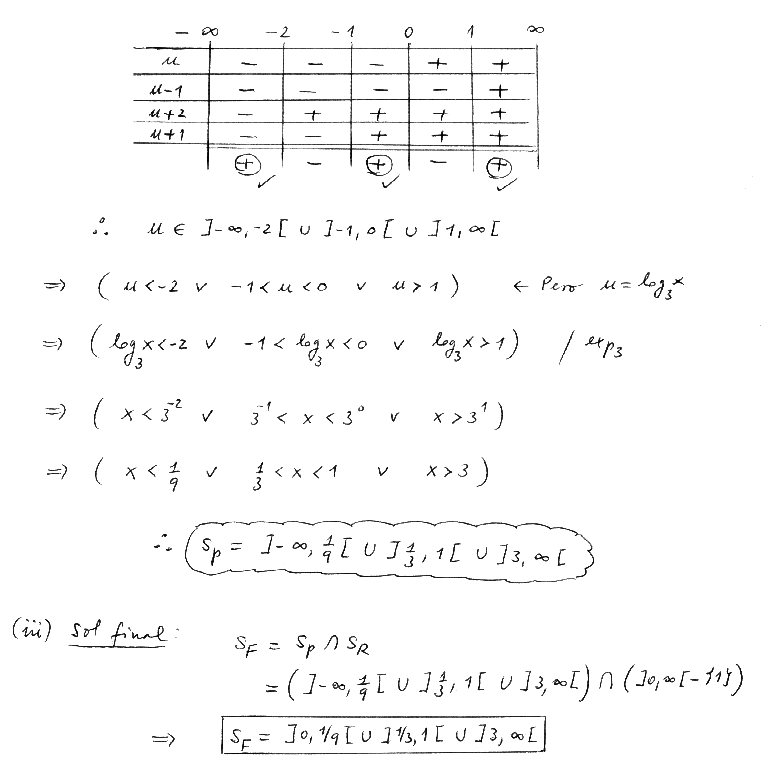 − ∞ −2 −1 0 1 ∞
u − − − + +
u−1 − − − − +
u+2 − + + + +
u+1 − − + + +
⊕ ✓ − ⊕ ✓ − ⊕ ✓
∴ u ∈ ]−∞,−2[ ∪ ]−1,0[ ∪ ]1,∞[
⇒ ( u<−2 ∨ −1<u<0 ∨ u>1 ) ← Pero u = log₃x
⇒ ( log₃x<−2 ∨ −1< log₃x<0 ∨ log₃x>1 ) / exp₃
⇒ ( x<3⁻² ∨ 3⁻¹< x <3⁰ ∨ x>3¹ )
⇒ ( x< 1/9 ∨ 1/3 <x<1 ∨ x>3 )
∴ Sp = ]−∞, 1/9 [ ∪ ] 1/3, 1[ ∪ ]3, ∞[
(iii) Sol final:
S_F = Sp ∩ S_R
= ( ]−∞, 1/9 [ ∪ ] 1/3, 1[ ∪ ]3, ∞[ ) ∩ ( ]0,∞[ −{1} )
⇒ S_F = ]0, 1/9[ ∪ ]1/3, 1[ ∪ ]3, ∞[